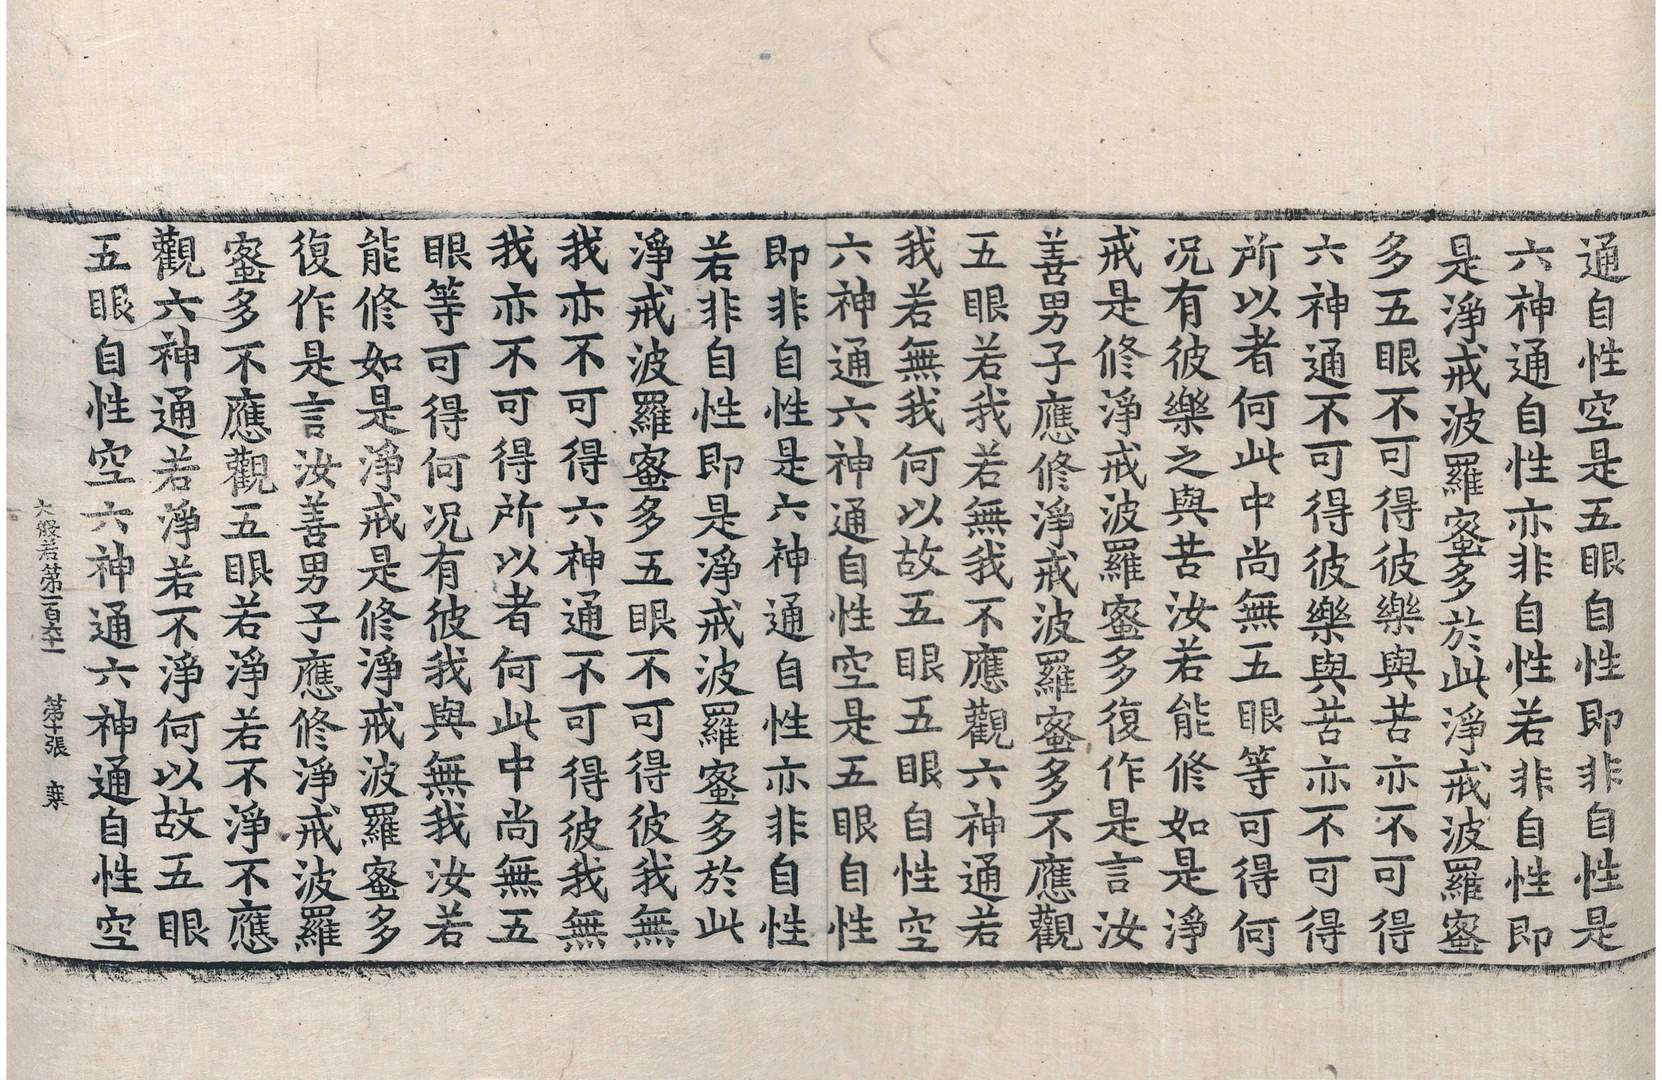 通自性空是五眼自性即非自性是
六神通自性亦非自性若非自性即
是淨戒波羅蜜多於此淨戒波羅蜜
多五眼不可得彼樂與苦亦不可得
六神通不可得彼樂與苦亦不可得
所以者何此中尚無五眼等可得何
况有彼樂之與苦汝若能修如是淨
戒是修淨戒波羅蜜多復作是言汝
善男子應修淨戒波羅蜜多不應觀
五眼若我若無我不應觀六神通若
我若無我何以故五眼五眼自性空
六神通六神通自性空是五眼自性
即非自性是六神通自性亦非自性
若非自性即是淨戒波羅蜜多於此
淨戒波羅蜜多五眼不可得彼我無
我亦不可得六神通不可得彼我無
我亦不可得所以者何此中尚無五
眼等可得何况有彼我與無我汝若
能修如是淨戒是修淨戒波羅蜜多
復作是言汝善男子應修淨戒波羅
蜜多不應觀五眼若淨若不淨不應
觀六神通若淨若不淨何以故五眼
五眼自性空六神通六神通自性空
大般若第一百六十一 第十張